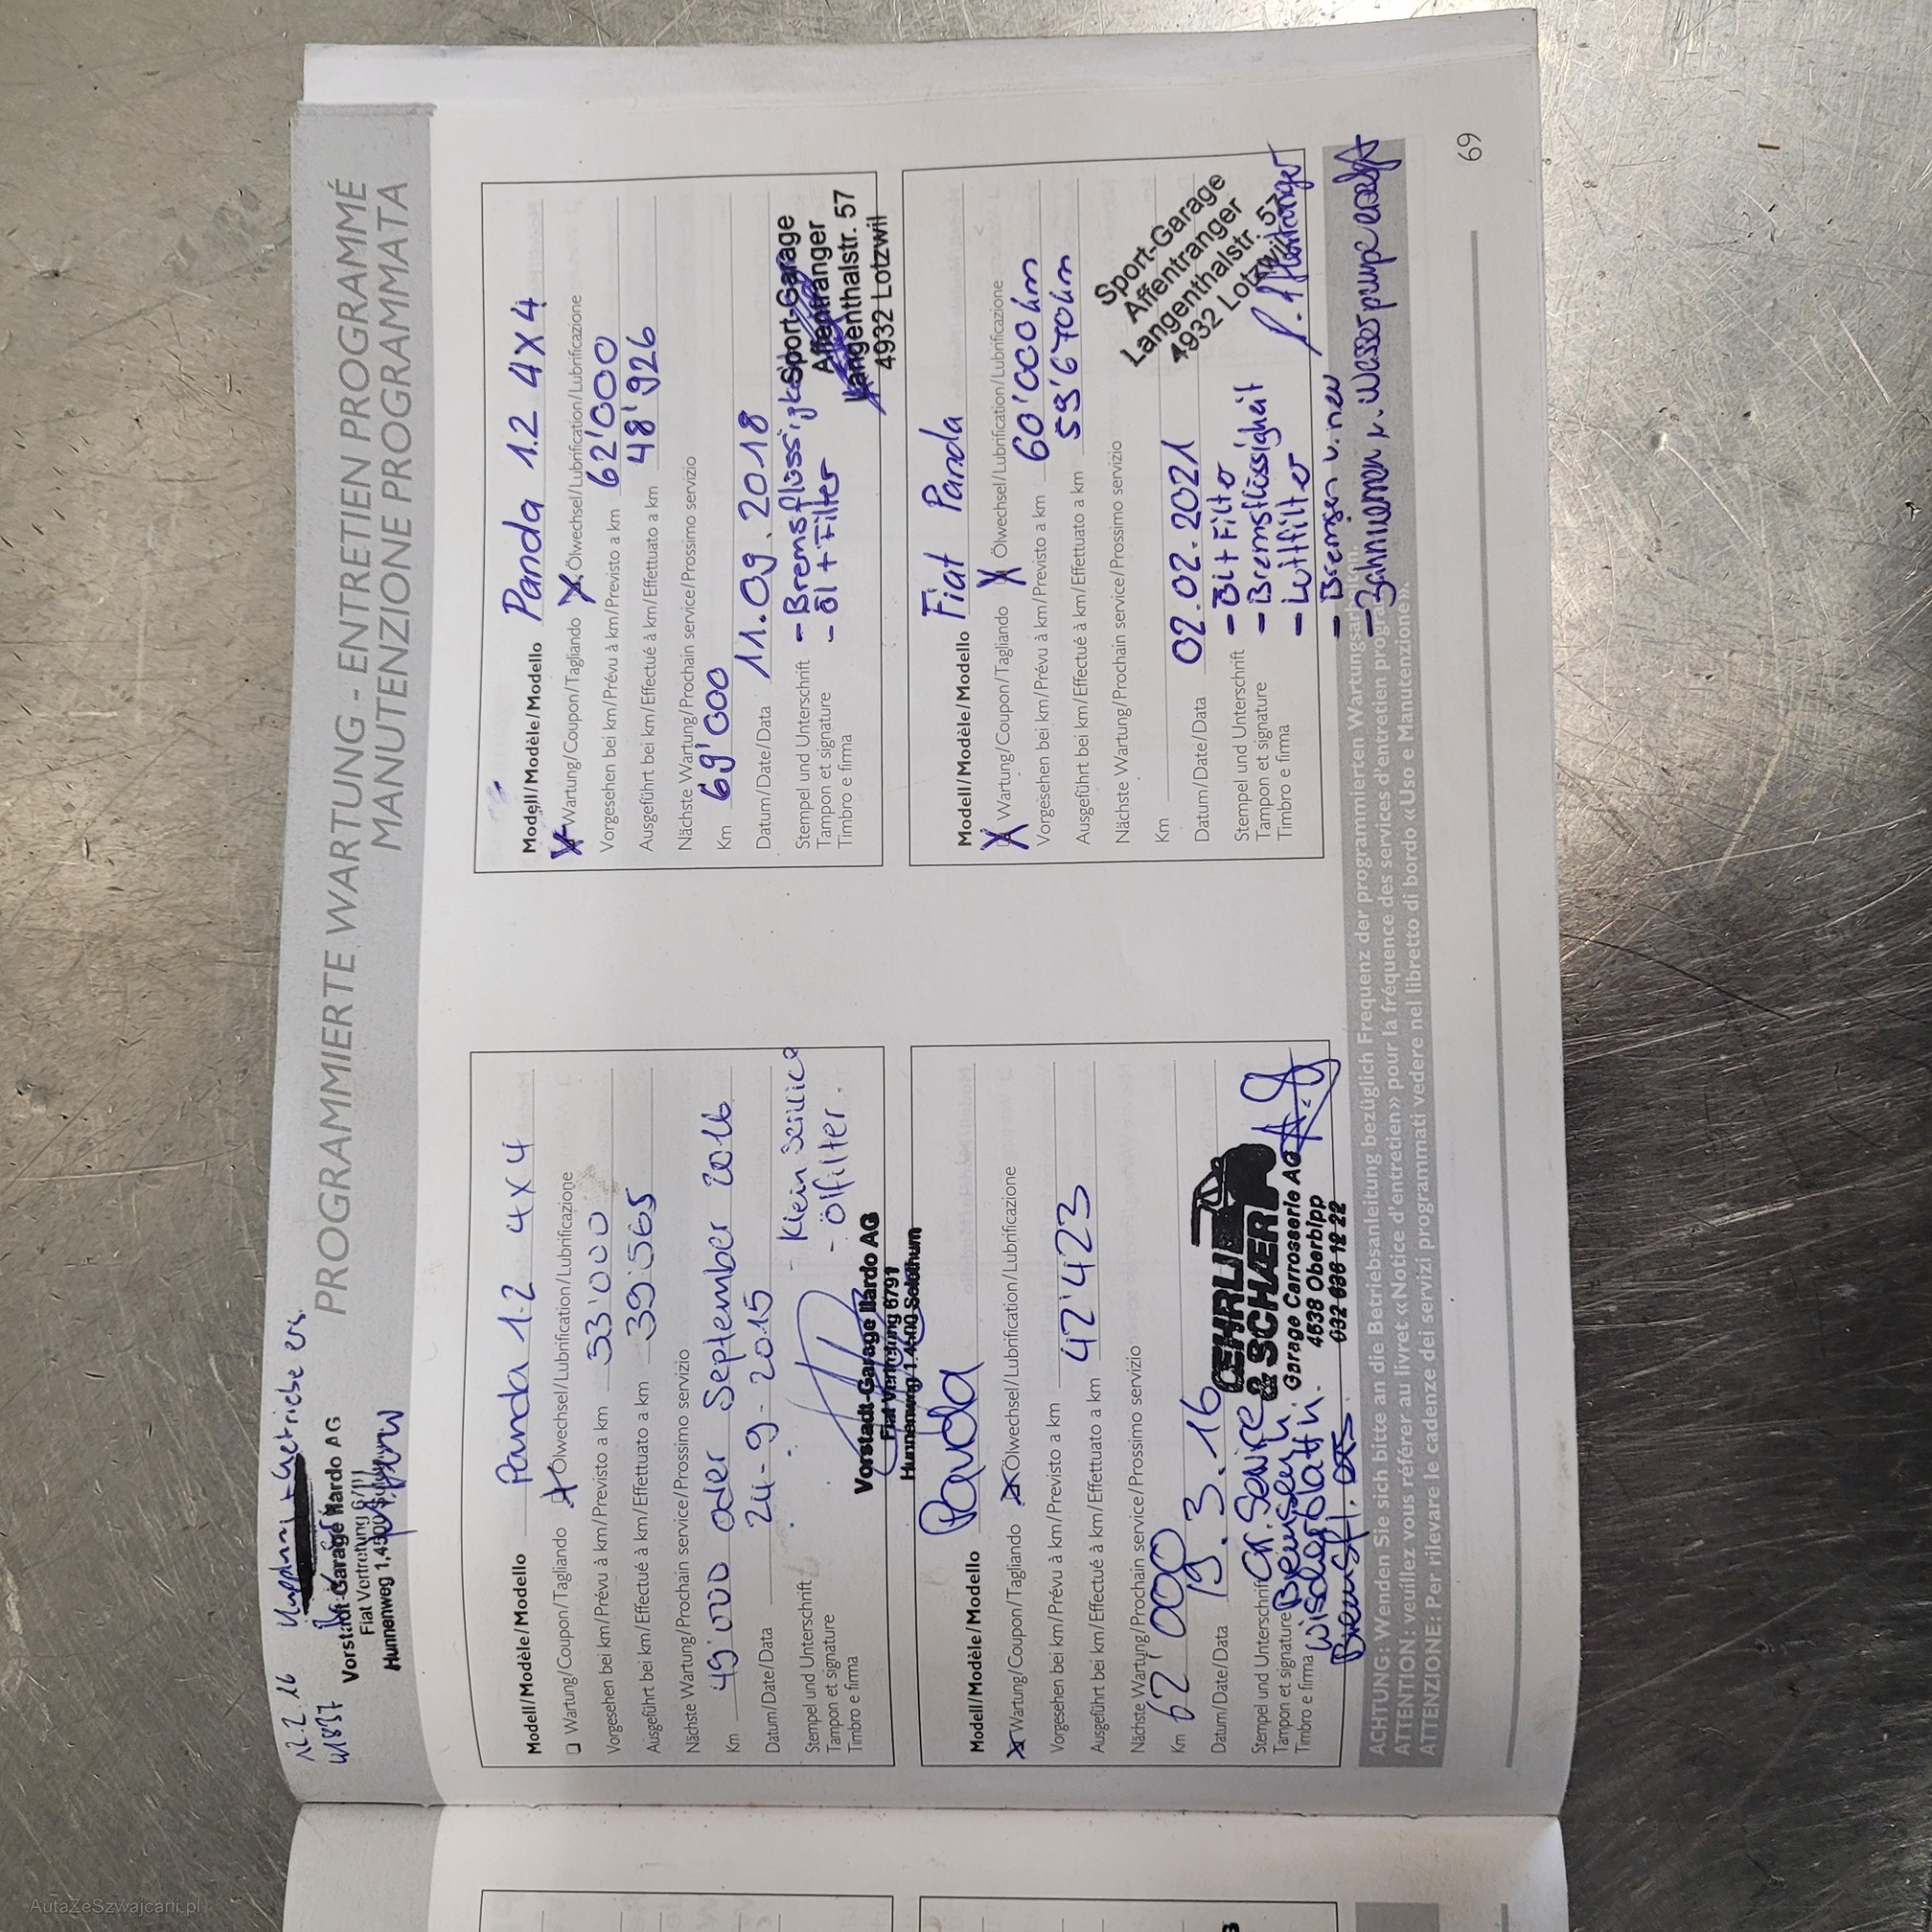 12.2.16
PROGRAMMIERTE WARTUNG - ENTRETIEN PROGRAMMÉ
MANUTENZIONE PROGRAMMATA
Vorstadt-Garage Ilardo AG
Fiat Vertretung
Hunnenweg 1,
Modell/Modèle/Modello Panda 1.2 4x4
Wartung/Coupon/Tagliando Ölwechsel/Lubrification/Lubrificazione
Vorgesehen bei km/Prévu à km/Previsto a km 53'000
Ausgeführt bei km/Effectué à km/Effettuato a km 39'565
Nächste Wartung/Prochain service/Prossimo servizio
Km 49'000 oder September 2016
Datum/Date/Data 24-9-2015
Stempel und Unterschrift - Klein
Tampon et signature - Ölfilter.
Timbro e firma
Vorstadt-Garage Ilardo AG
Fiat Vertretung 6791
Hunnenweg 1.4500 Solothurn
Modell/Modèle/Modello Panda
Wartung/Coupon/Tagliando Ölwechsel/Lubrification/Lubrificazione
Vorgesehen bei km/Prévu à km/Previsto a km
Ausgeführt bei km/Effectué à km/Effettuato a km 42'423
Nächste Wartung/Prochain service/Prossimo servizio
Km 62'000
Datum/Date/Data 19.3.16
Stempel und Unterschrift Gr. Service
Tampon et signature
Timbro e firma
OEHRLI
& SCHÄER
Garage Carrosserie AG
4538 Oberbipp
032 636 12 22
Modell/Modèle/Modello Panda 1.2 4x4
Wartung/Coupon/Tagliando Ölwechsel/Lubrification/Lubrificazione
Vorgesehen bei km/Prévu à km/Previsto a km 62'000
Ausgeführt bei km/Effectué à km/Effettuato a km 48'926
Nächste Wartung/Prochain service/Prossimo servizio
Km 69'000
Datum/Date/Data 11.09.2018
Stempel und Unterschrift - Bremsflüssigkeit
Tampon et signature - Öl + Filter
Timbro e firma
Sport-Garage
Affentranger
Langenthalstr. 57
4932 Lotzwil
Modell/Modèle/Modello Fiat Panda
Wartung/Coupon/Tagliando Ölwechsel/Lubrification/Lubrificazione
Vorgesehen bei km/Prévu à km/Previsto a km 60'000 km
Ausgeführt bei km/Effectué à km/Effettuato a km 59'670 km
Nächste Wartung/Prochain service/Prossimo servizio
Km
Datum/Date/Data 02.02.2021
Stempel und Unterschrift - Öl + Filter
Tampon et signature - Bremsflüssigkeit
Timbro e firma - Luftfilter
- Bremsen v. neu
- Zahnriemen u. Wasserpumpe ersetzt
Sport-Garage
Affentranger
Langenthalstr. 57
4932 Lotzwil
ACHTUNG: Wenden Sie sich bitte an die Betriebsanleitung bezüglich Frequenz der programmierten Wartungsarbeiten.
ATTENTION: veuillez vous référer au livret «Notice d'entretien» pour la fréquence des services d'entretien
ATTENZIONE: Per rilevare le cadenze dei servizi programmati vedere nel libretto di bordo «Uso e Manutenzione».
69
AutaZeSzwajcarii.pl